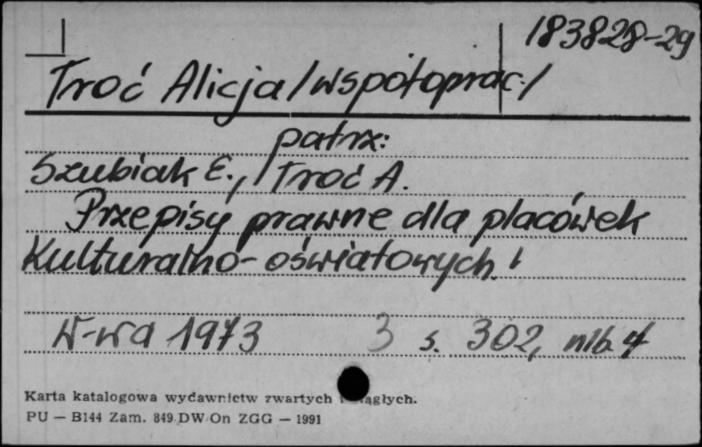 183828-29
Troć Alicja /współoprac./
patrz:
Szubiak E., Troć A.
Przepisy prawne dla placówek
Kulturalno-oświatowych.
W-wa 1973 3 s. 302, nlb. 4
Karta katalogowa wydawnictw zwartych i ciągłych.
PU — B144 Zam. 849 DW On ZGG — 1991